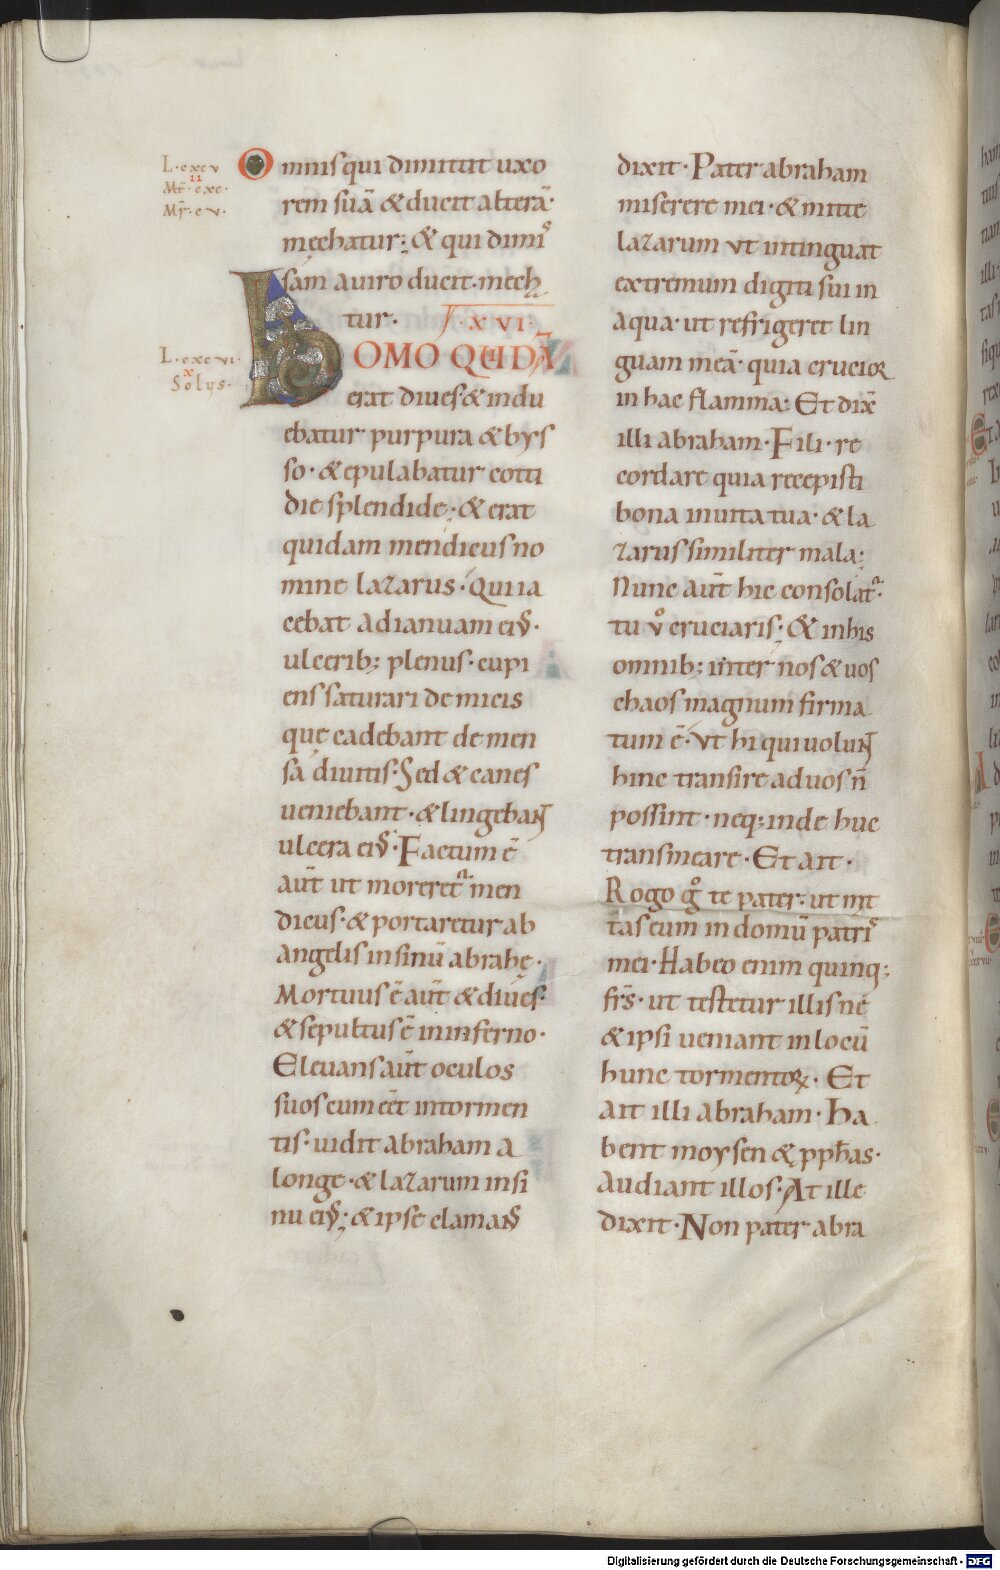 L·cxcv
II
Mt̄·cxc·
Mr̄·cv·
Omnis qui dimittit uxo
rem suā & ducit alterā·
męchatur; & qui dimis
sam a uiro ducit·męcha
tur· XVI·
L·cxcvi·
X
Solus·
HOMO QUIDĀ
erat diues & indu
ebatur purpura & bys
so· & epulabatur cotti
die splendide; & erat
quidam mendicus no
mine lazarus· Qui ia
cebat ad ianuam eius·
ulcerib; plenus· cupi
ens saturari de micis
quę cadebant de men
sa diuitis· Sed & canes
ueniebant· & lingebant
ulcera eius· Factum ē
aūt ut moreretur men
dicus· & portaretur ab
angelis in sinū abrahę·
Mortuus ē aūt & diues·
& sepultus ē in inferno·
Eleuans aūt oculos
suos cum eēt in tormen
tis· uidit abraham a
longe· & lazarum in si
nu eius; & ipse clamans
dixit· Pater abraham
miserere mei· & mitte
lazarum vt intinguat
extremum digiti sui in
aqua· ut refrigeret lin
guam meā· quia crucior
in hac flamma; Et dix̄
illi abraham· Fili· re
cordare quia recepisti
bona in uita tua· & la
zarus similiter mala;
Nunc aūt hic consolatur·
tu v̊ cruciaris; & in his
omnib; inter nos & uos
chaos magnum firma
tum ē· Vt hi qui uolunt
hinc transire ad uos n̄
possint· neq; inde huc
transmeare· Et ait·
Rogo g̊ te pater; ut mit
tas eum in domū patris
mei· Habeo enim quinq;
frs̄· ut testetur illis ne
& ipsi ueniant in locū
hunc tormentoꝝ· Et
ait illi abraham· Ha
bent moysen & ꝓph̄as·
Audiant illos· At ille
dixit· Non pater abra
Digitalisierung gefördert durch die Deutsche Forschungsgemeinschaft · DFG